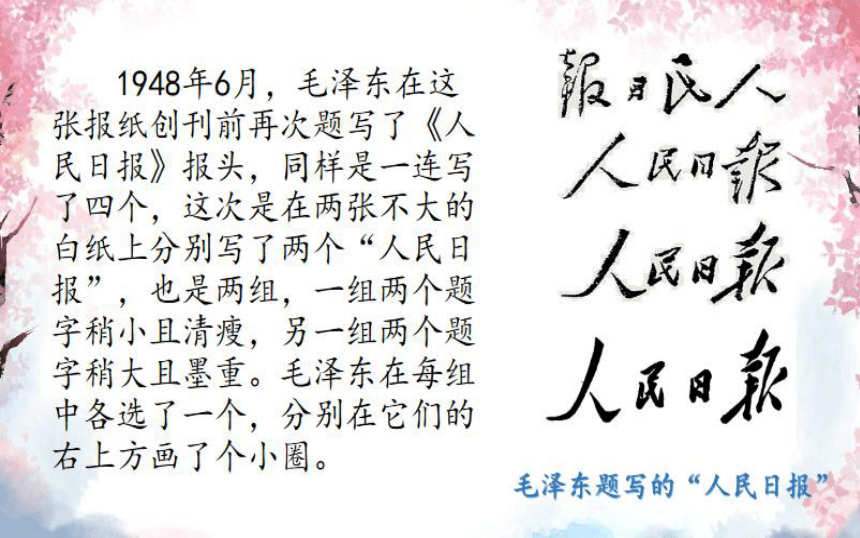 1948年6月，毛泽东在这
张报纸创刊前再次题写了《人
民日报》报头，同样是一连写
了四个，这次是在两张不大的
白纸上分别写了两个“人民日
报”，也是两组，一组两个题
字稍小且清瘦，另一组两个题
字稍大且墨重。毛泽东在每组
中各选了一个，分别在它们的
右上方画了个小圈。
報日民人
人民日報
人民日报
人民日报
毛泽东题写的“人民日报”